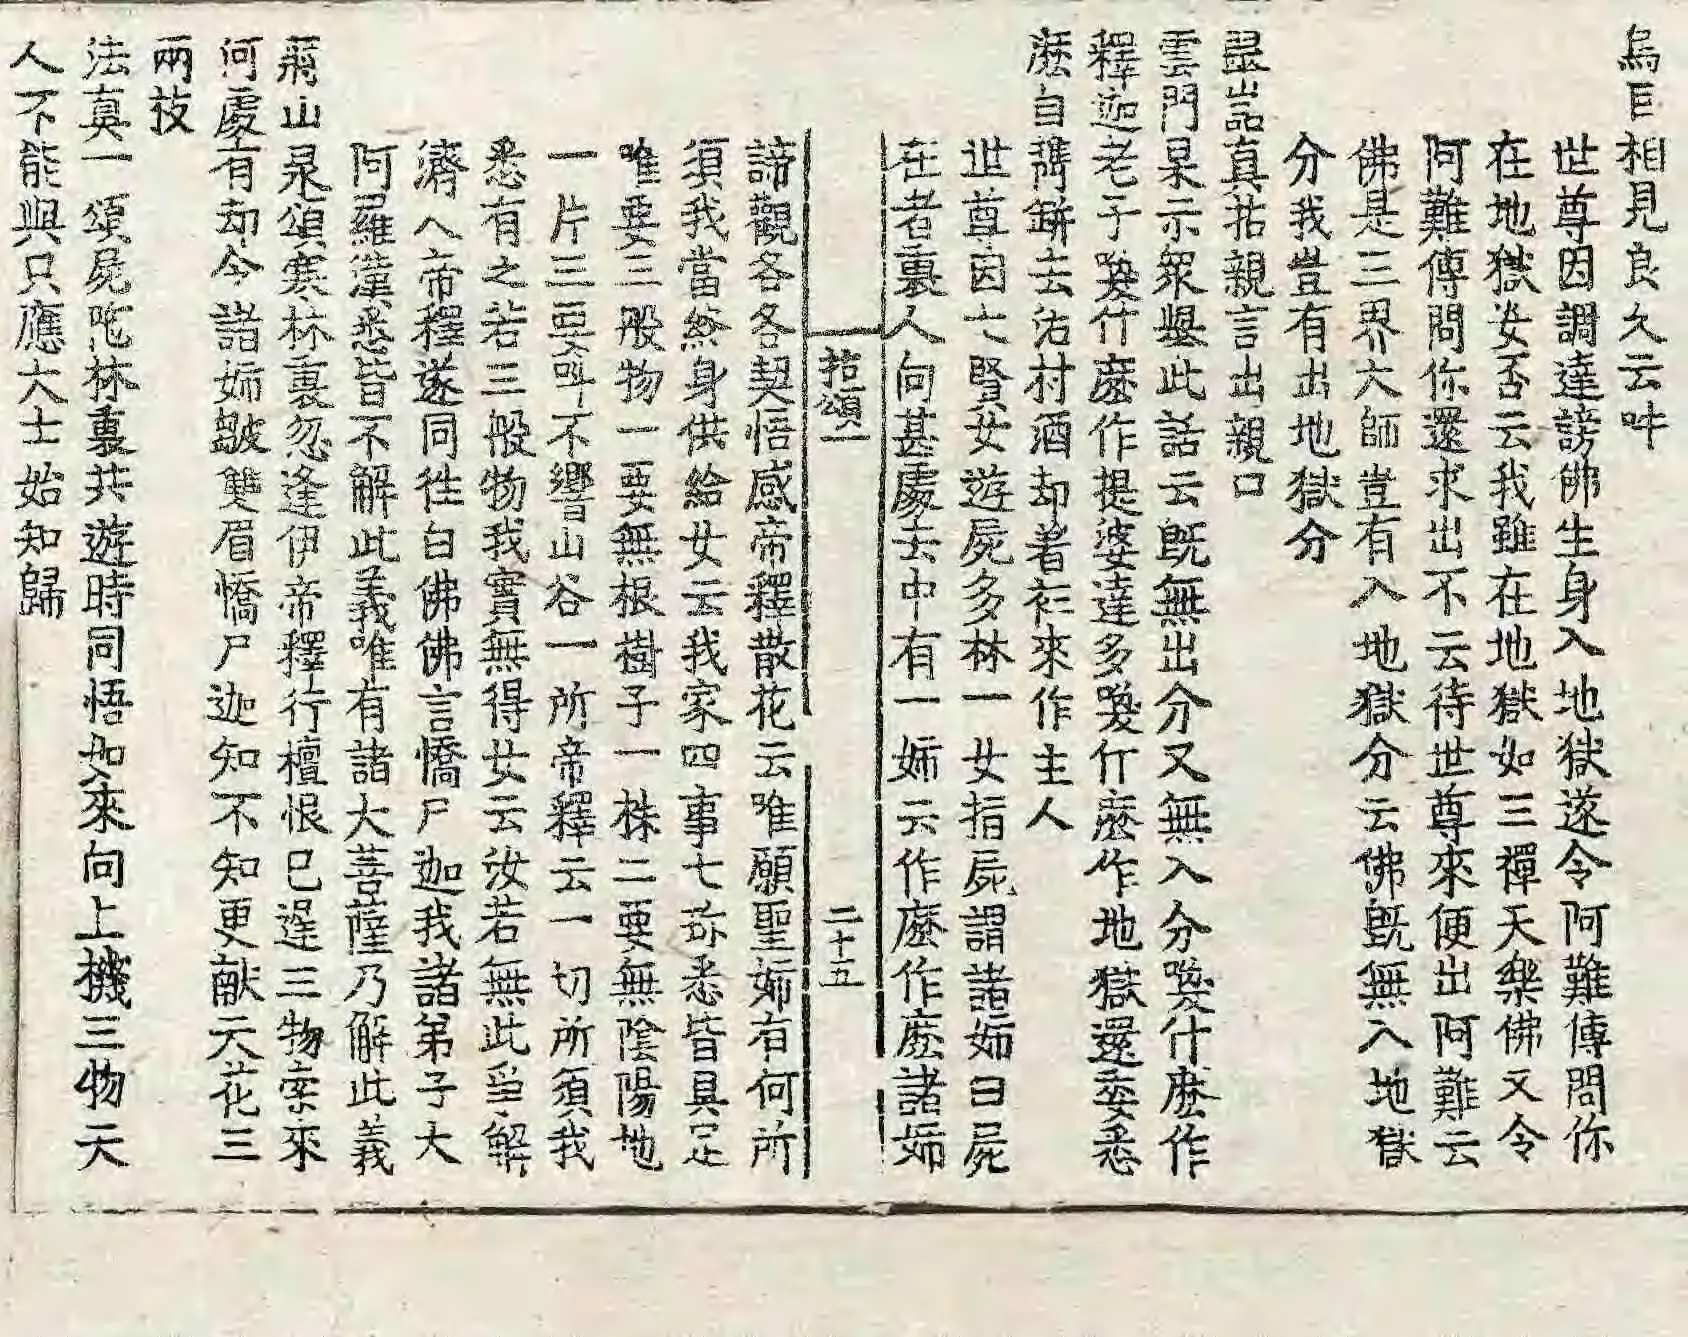 烏巨相見良久云吽
世尊因調達謗佛生身入地獄遂令阿難傳問你
在地獄安否云我雖在地獄如三禪天樂佛又令
阿難傳問你還求出不云待世尊來便出阿難云
佛是三界大師豈有入地獄分云佛旣無入地獄
分我豈有出地獄分
翠嵓真拈親言出親口
雲門杲示眾擧此話云旣無出分又無入分喚什麽作
釋迦老子喚什麽作提婆達多喚什麽作地獄還委悉
麽自携缾去沽村酒却著衫來作主人
世尊因七賢女遊屍多林一女指屍謂諸姉曰屍
在者裏人向甚處去中有一姉云作麽作麽諸姉
拈頌一 二十五
諦觀各各契悟感帝釋散花云唯願聖姉有何所
須我當終身供給女云我家四事七珎悉皆具足
唯要三般物一要無根樹子一株二要無陰陽地
一片三要呌不響山谷一所帝釋云一切所須我
悉有之若三般物我實無得女云汝若無此爭解
濟人帝釋遂同徃白佛佛言憍尸迦我諸弟子大
阿羅漢悉皆不解此義唯有諸大菩薩乃解此義
蔣山泉頌寒林裏忽逢伊帝釋行檀恨已遲三物索來
何處有却令諸姉皺雙眉憍尸迦知不知更献天花三
兩枝
法真一頌屍陁林裏共遊時同悟如來向上機三物天
人不能與只應大士始知歸